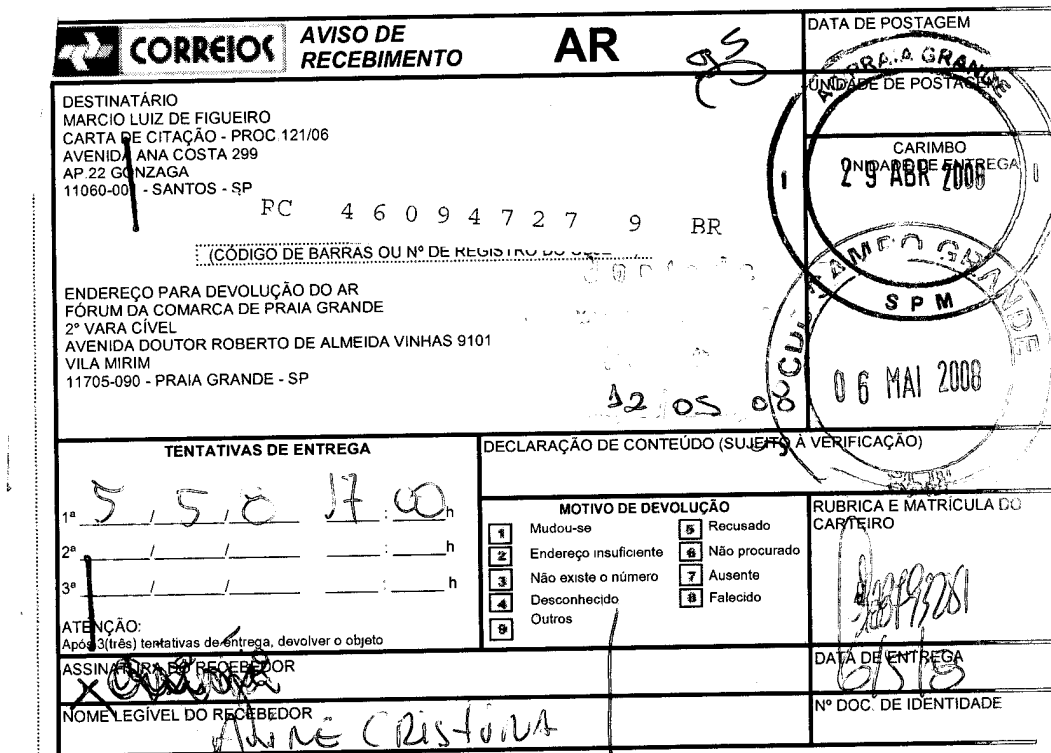 CORREIOS
AVISO DE
RECEBIMENTO
AR
DATA DE POSTAGEM
AC PRAIA GRANDE
UNIDADE DE POSTAGEM
DESTINATÁRIO
MARCIO LUIZ DE FIGUEIRO
CARTA DE CITAÇÃO - PROC.121/06
AVENIDA ANA COSTA 299
AP.22 GONZAGA
11060-001 - SANTOS - SP
CARIMBO
UNIDADE DE ENTREGA
29 ABR 2008
SPM
RC 46094727 9 BR
(CÓDIGO DE BARRAS OU Nº DE REGISTRO DO
ENDEREÇO PARA DEVOLUÇÃO DO AR
FÓRUM DA COMARCA DE PRAIA GRANDE
2° VARA CÍVEL
AVENIDA DOUTOR ROBERTO DE ALMEIDA VINHAS 9101
VILA MIRIM
11705-090 - PRAIA GRANDE - SP
12 05 08
CAMPO GRANDE
06 MAI 2008
TENTATIVAS DE ENTREGA
1ª 5 / 5 / 8 17 : 00 h
2ª / / : h
3ª / / : h
ATENÇÃO:
Após 3(três) tentativas de entrega, devolver o objeto
DECLARAÇÃO DE CONTEÚDO (SUJEITO À VERIFICAÇÃO)
MOTIVO DE DEVOLUÇÃO
1 Mudou-se
2 Endereço insuficiente
3 Não existe o número
4 Desconhecido
9 Outros
5 Recusado
6 Não procurado
7 Ausente
8 Falecido
RUBRICA E MATRÍCULA DO
CARTEIRO
ASSINATURA DO RECEBEDOR
DATA DE ENTREGA
6/5/8
NOME LEGÍVEL DO RECEBEDOR
ALINE CRISTINA
Nº DOC. DE IDENTIDADE